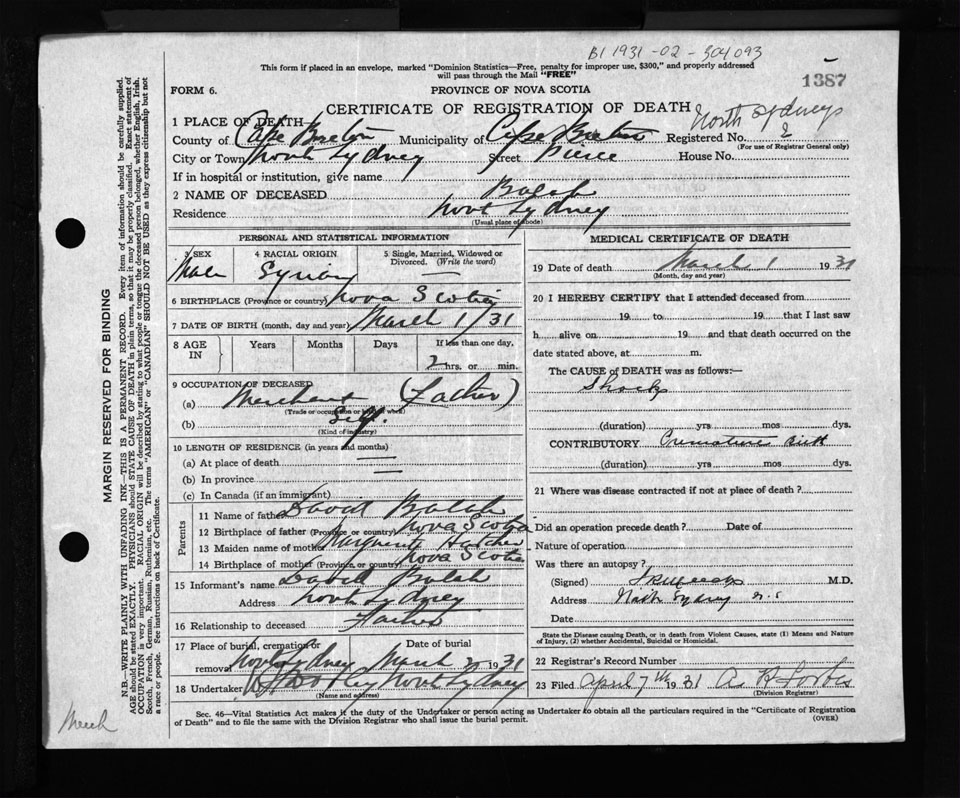 B1 1931-02-304093
This form if placed in an envelope, marked "Dominion Statistics—Free, penalty for improper use, $300," and properly addressed
will pass through the Mail "FREE"
1387
FORM 6.
PROVINCE OF NOVA SCOTIA
CERTIFICATE OF REGISTRATION OF DEATH
North Sydney
1 PLACE OF DEATH
County of Cape Breton Municipality of Cape Breton Registered No. 2
(For use of Registrar General only)
City or Town North Sydney Street Pierce House No.
If in hospital or institution, give name
2 NAME OF DECEASED Balah
Residence North Sydney
(Usual place of abode)
PERSONAL AND STATISTICAL INFORMATION
3 SEX 4 RACIAL ORIGIN 5 Single, Married, Widowed or
Divorced. (Write the word)
Male Syrian —
6 BIRTHPLACE (Province or country) Nova Scotia
7 DATE OF BIRTH (month, day and year) March 1/31
8 AGE IN Years Months Days If less than one day,
2 hrs. or min.
9 OCCUPATION OF DECEASED
(a) Merchant (Father)
(Trade or occupation or kind of work)
(b) Self.
(Kind of industry)
10 LENGTH OF RESIDENCE (in years and months)
(a) At place of death
(b) In province
(c) In Canada (if an immigrant)
Parents
11 Name of father David Balah
12 Birthplace of father (Province or country) Nova Scotia
13 Maiden name of mother Marguerite
14 Birthplace of mother (Province or country) Nova Scotia
15 Informant's name David Balah
Address North Sydney
16 Relationship to deceased Father
17 Place of burial, cremation or Date of burial
removal North Sydney March 2 1931
18 Undertaker North Sydney
(Name and address)
MEDICAL CERTIFICATE OF DEATH
19 Date of death March 1 1931
(Month, day and year)
20 I HEREBY CERTIFY that I attended deceased from
19 to 19 that I last saw
h alive on 19 and that death occurred on the
date stated above, at m.
The CAUSE OF DEATH was as follows:—
Shock
(duration) yrs mos dys.
CONTRIBUTORY Premature Birth
(duration) yrs mos dys.
21 Where was disease contracted if not at place of death?
Did an operation precede death? Date of
Nature of operation
Was there an autopsy?
(Signed) M.D.
Address North Sydney N.S
Date
State the Disease causing Death, or in death from Violent Causes, state (1) Means and Nature
of Injury, (2) whether Accidental, Suicidal or Homicidal.
22 Registrar's Record Number
23 Filed April 7th 1931 A R Forbes
(Division Registrar)
Sec. 46—Vital Statistics Act makes it the duty of the Undertaker or person acting as Undertaker to obtain all the particulars required in the "Certificate of Registration
of Death" and to file the same with the Division Registrar who shall issue the burial permit.
(OVER)
MARGIN RESERVED FOR BINDING
N.B.—WRITE PLAINLY WITH UNFADING INK—THIS IS A PERMANENT RECORD. Every item of information should be carefully supplied.
AGE should be stated EXACTLY. PHYSICIANS should STATE CAUSE OF DEATH in plain terms, so that it may be properly classified. Exact statement of
OCCUPATION is very important. RACIAL ORIGIN will be described by stating to what people or tongue the deceased person belonged, whether English, Irish,
Scotch, French, German, Russian, Ruthenian, etc. The terms "AMERICAN" or "CANADIAN" SHOULD NOT BE USED as they express citizenship but not
a race or people. See instructions on back of Certificate.
Merch